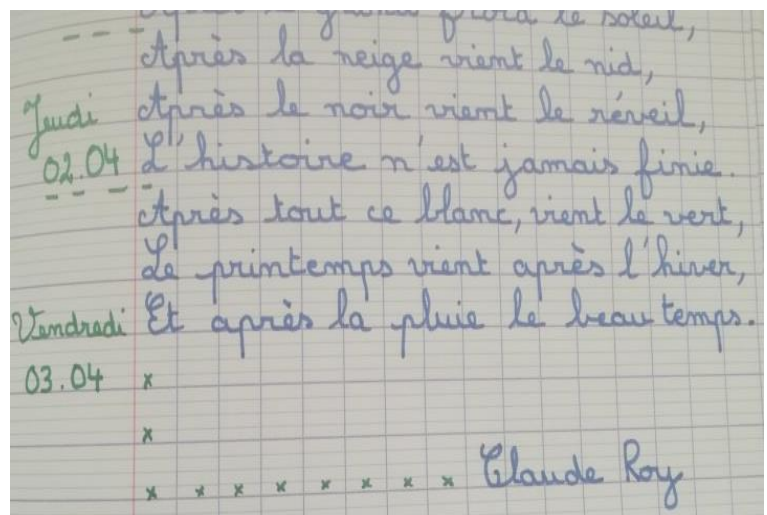 le soleil,
Après la neige vient le nid,
Jeudi Après le noir vient le réveil,
02.04 L'histoire n'est jamais finie.
Après tout ce blanc, vient le vert,
Le printemps vient après l'hiver,
Vendredi Et après la pluie le beau temps.
03.04 x
x
x x x x x x x x Claude Roy